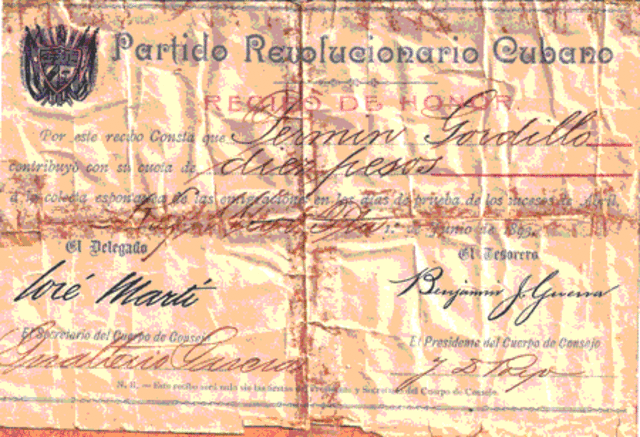 Partido Revolucionario Cubano
RECIBO DE HONOR.
Por este recibo Consta que Fermin Gordillo
contribuyó con su cuota de diez pesos
á la colecta espontanea de las emigraciones en los dias de prueba de los sucesos de Abril.
1.º de Junio de 189
El Delegado
El Tesorero
José Martí
Benjamin J. Guerra
El Secretario del Cuerpo de Consejo
El Presidente del Cuerpo de Consejo
J D Poyo
N. B. — Este recibo será nulo sin las firmas del Presidente y Secretario del Cuerpo de Consejo.